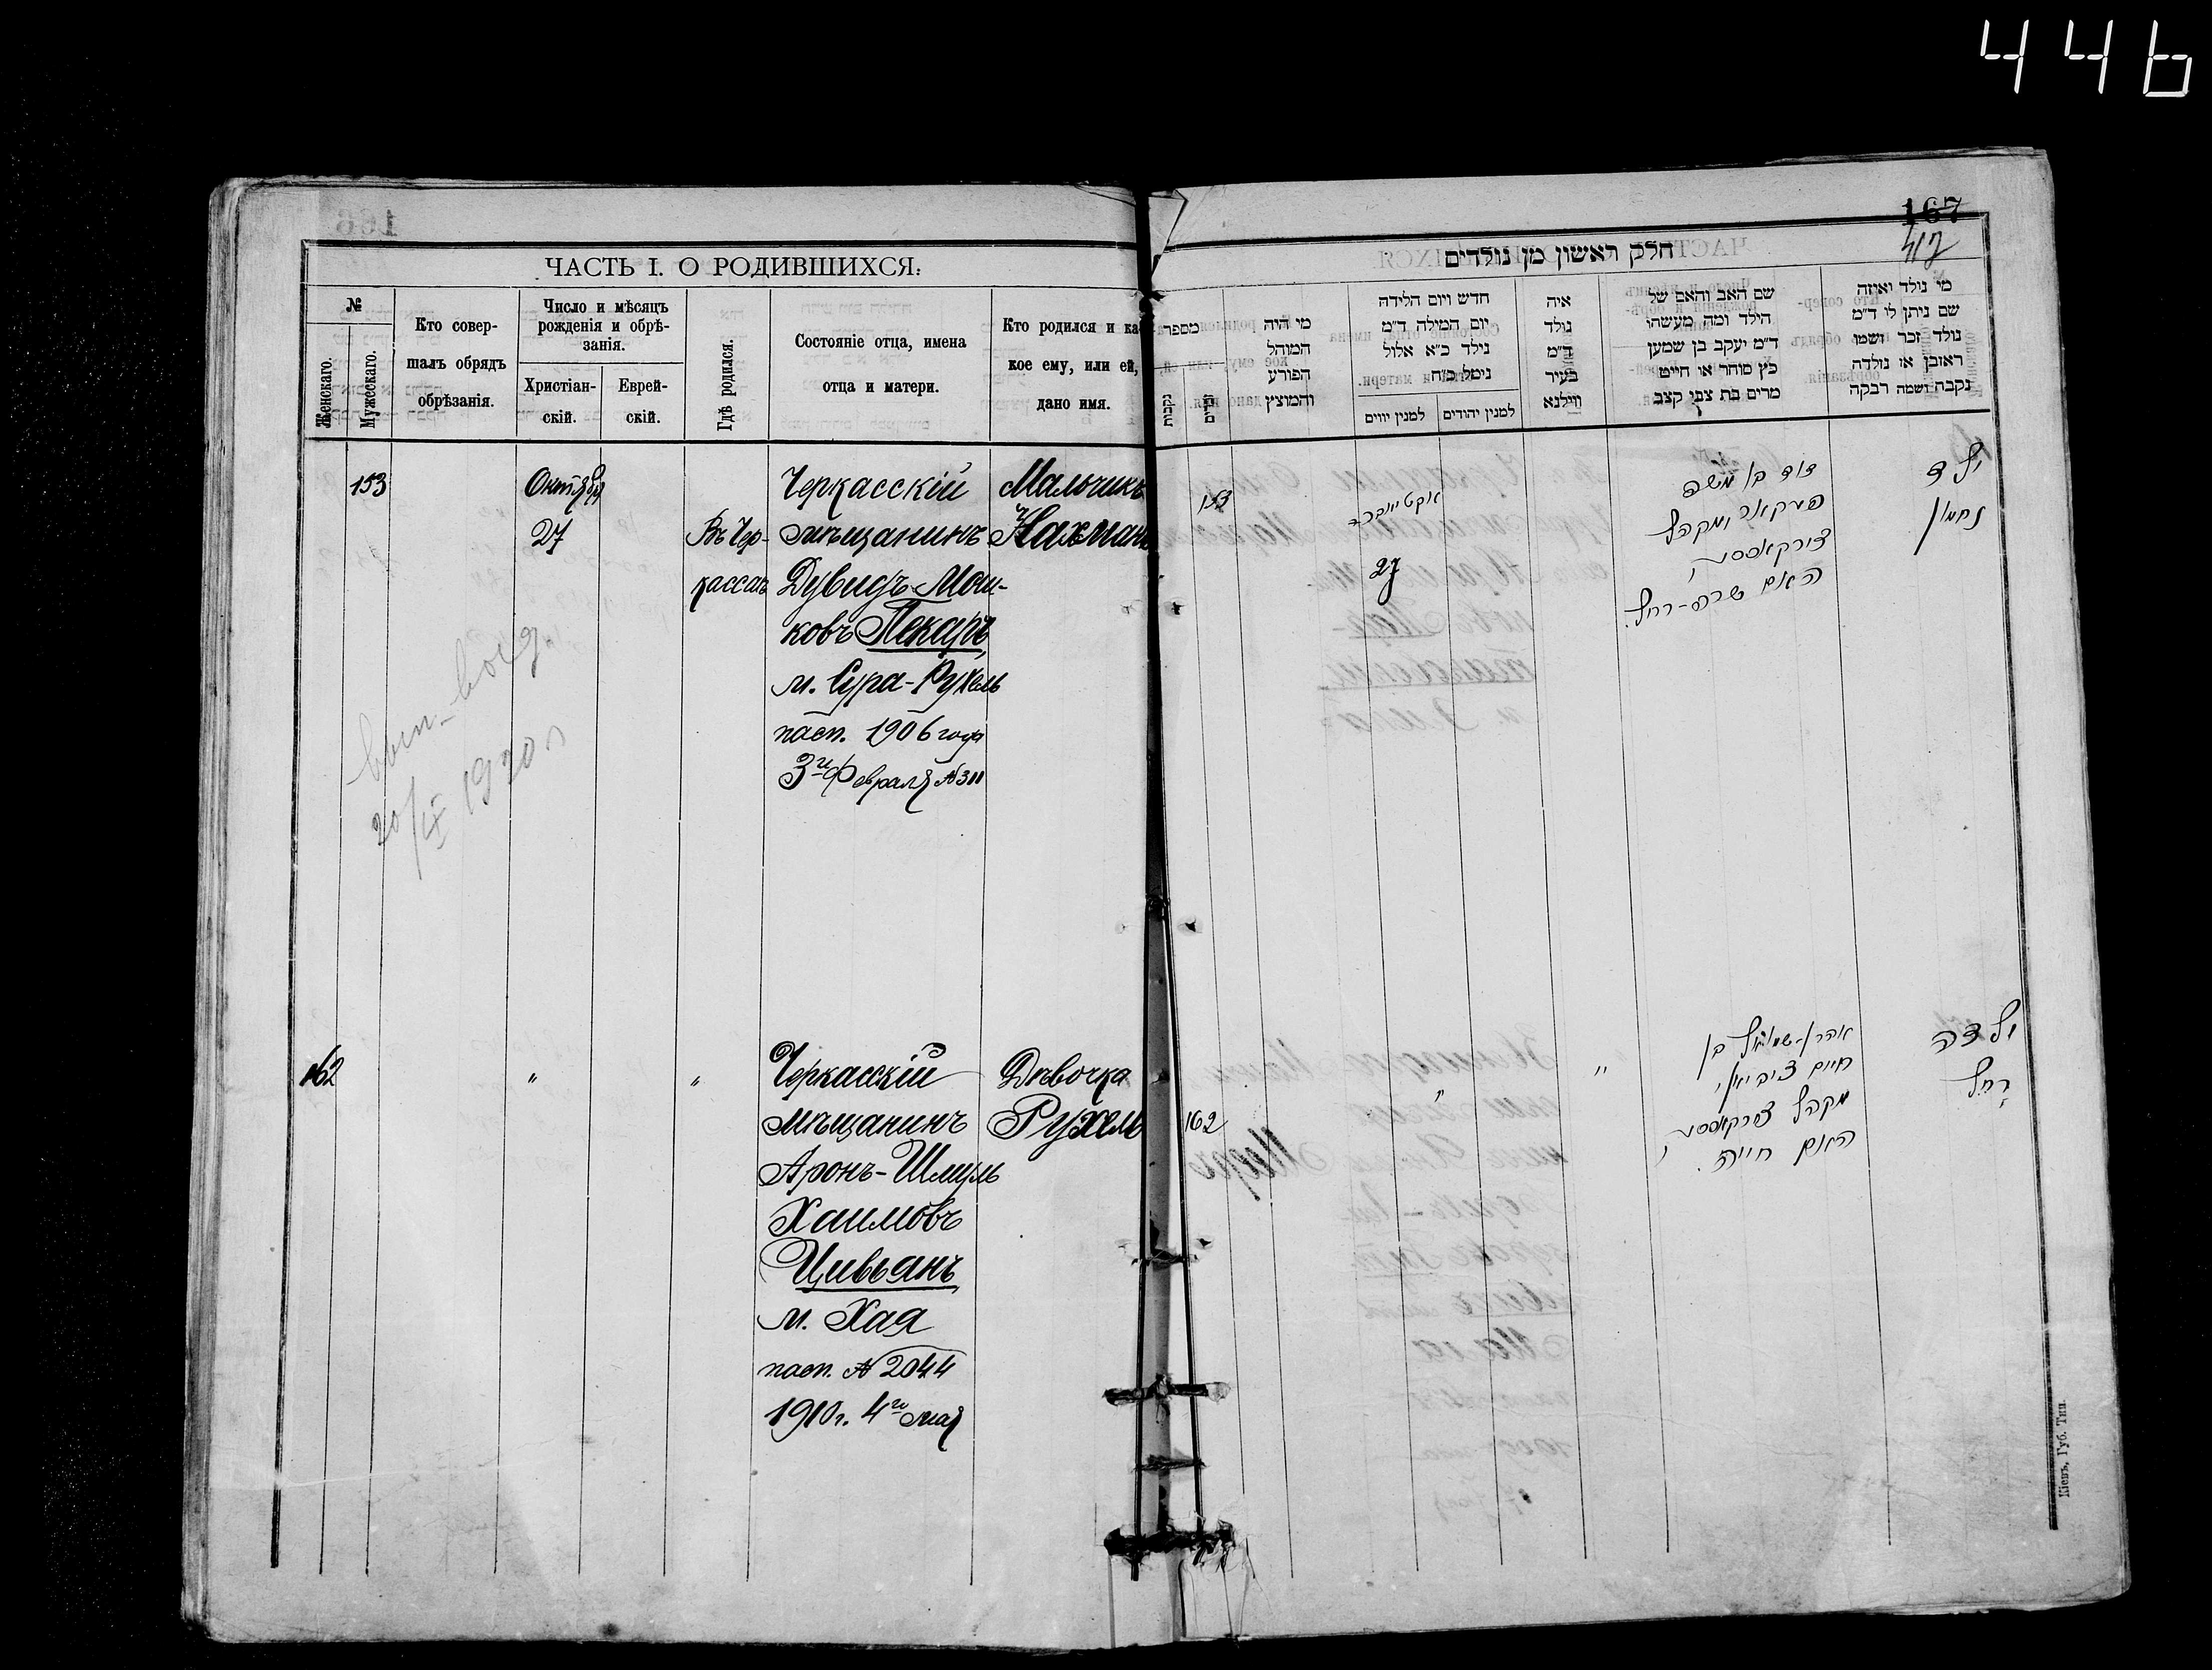 446
ЧАСТЬ I. О РОДИВШИХСЯ.
№
Женскаго.
Мужескаго.
Кто совер-
шалъ обрядъ
обрѣзанія.
Число и мѣсяцъ
рожденія и обрѣ-
занія.
Христіан-
скій.
Еврей-
скій.
Гдѣ родился.
Состояніе отца, имена
отца и матери.
Кто родился и ка-
кое ему, или ей,
дано имя.
153
Октября
27
Въ Чер-
кассахъ
Черкасскій
мѣщанинъ
Дувидъ Мош-
ковъ Пекаръ,
м. Сура-Рухель
пасп. 1906 года
3го Февраля №311
Мальчикъ
Нахманъ
20/IX 1920 г
162
"
"
Черкасскій
Мѣщанинъ
Аронъ-Шмуль
Хаимовъ
Цивьянъ
м. Хая
пасп. № 2044
1910г. 4го мая
Дѣвочка
Рухель
167
412
חלק ראשון מן נולדים
מספר
נקבות
זכרים
מי היה
המוהל
הפורע
והמוצץ
חדש ויום הלידה
יום המילה ד"מ
נילד כ"א אלול
נימל כ"ח
למנין יווים
למנין יהודים
איה
נולד
ד"מ
בעיר
ווילנא
שם האב והאם של
הילד ומה מעשהו
ד"מ יעקב בן שמען
כץ סוחר או חייט
מרים בת צבי קצב
מי נולד ואיזה
שם ניתן לו ד"מ
נולד זכר ושמו
ראובן או נולדה
נקבה ושמה רבקה
153
אקטיאבר
27
דוד בן משה
פעקאר מקהל
צירקאססי
האם שרה-רחל.
ילד
נחמן
162
"
"
אהרן-שמואל בן
חיים ציוויאן
מקהל צירקאססי
האם חיה.
ילדה
רחל
Кіевъ, Губ. Тип.